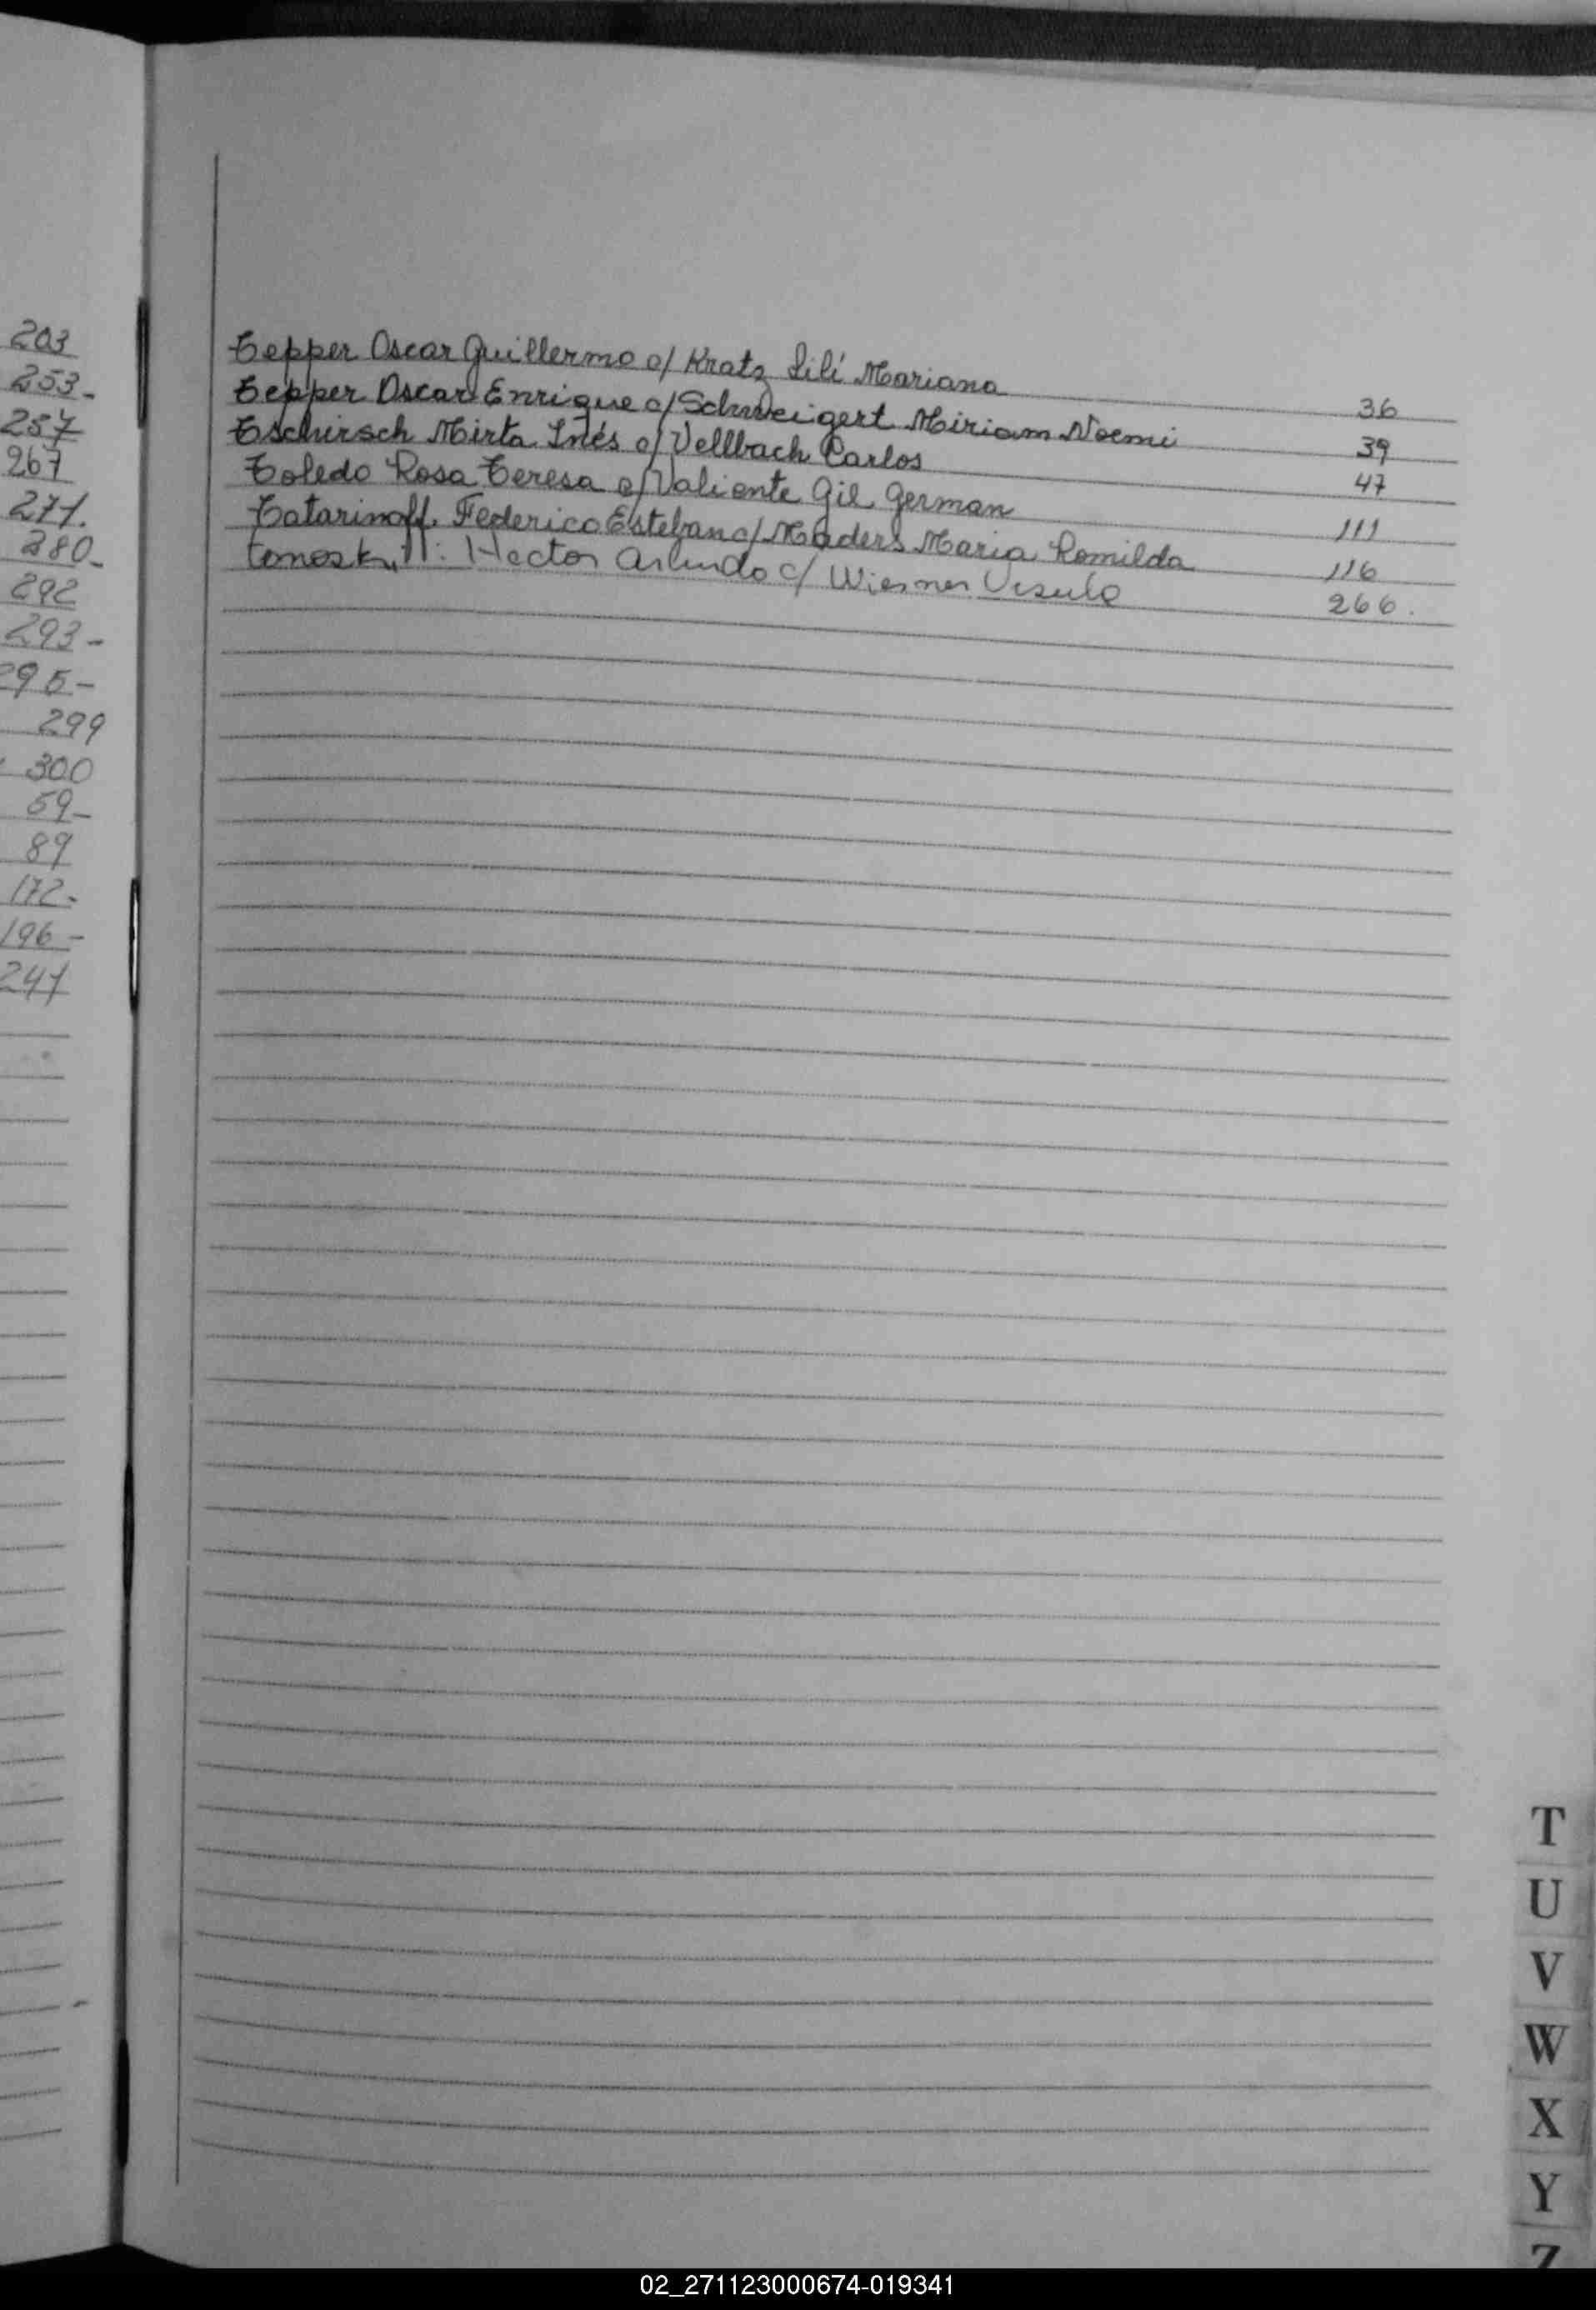 203
253-
257
267
271.
280-
292
293-
295-
299
300
59-
89
172-
196-
241
Tepper Oscar Guillermo c/ Kratz Lilí Mariana 36
Tepper Oscar Enrique c/ Schweigert Miriam Noemi 39
Tschirsch Mirta Inés c/ Vellbach Carlos 47
Toledo Rosa Teresa c/ Valiente Gil German 111
Tatarinoff Federico Esteban c/ Maders Maria Romilda 116
Hector Arlindo c/ Wiesner Ursula 266.
T
U
V
W
X
Y
Z
02_271123000674-019341